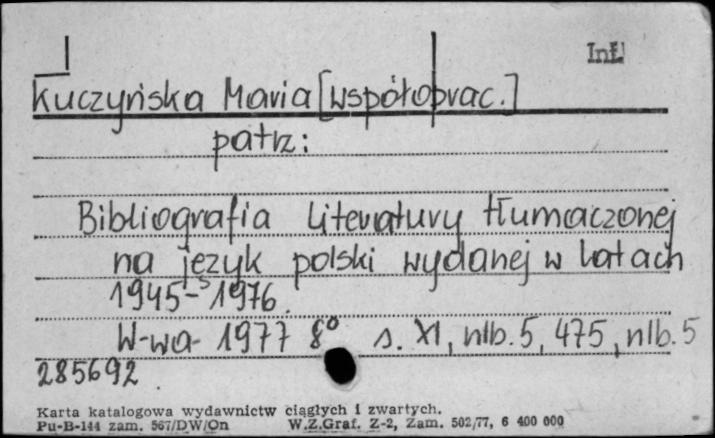 Inf.
Kuczyńska Maria [współoprac.]
patrz:
Bibliografia literatury tłumaczonej
na język polski wydanej w latach
1945-1976.
W-wa 1977 8° s. XI, nlb. 5, 475, nlb. 5
285692
Karta katalogowa wydawnictw ciągłych i zwartych.
Pu-B-144 zam. 567/DW/On W.Z.Graf. Z-2, Zam. 502/77, 6 400 000